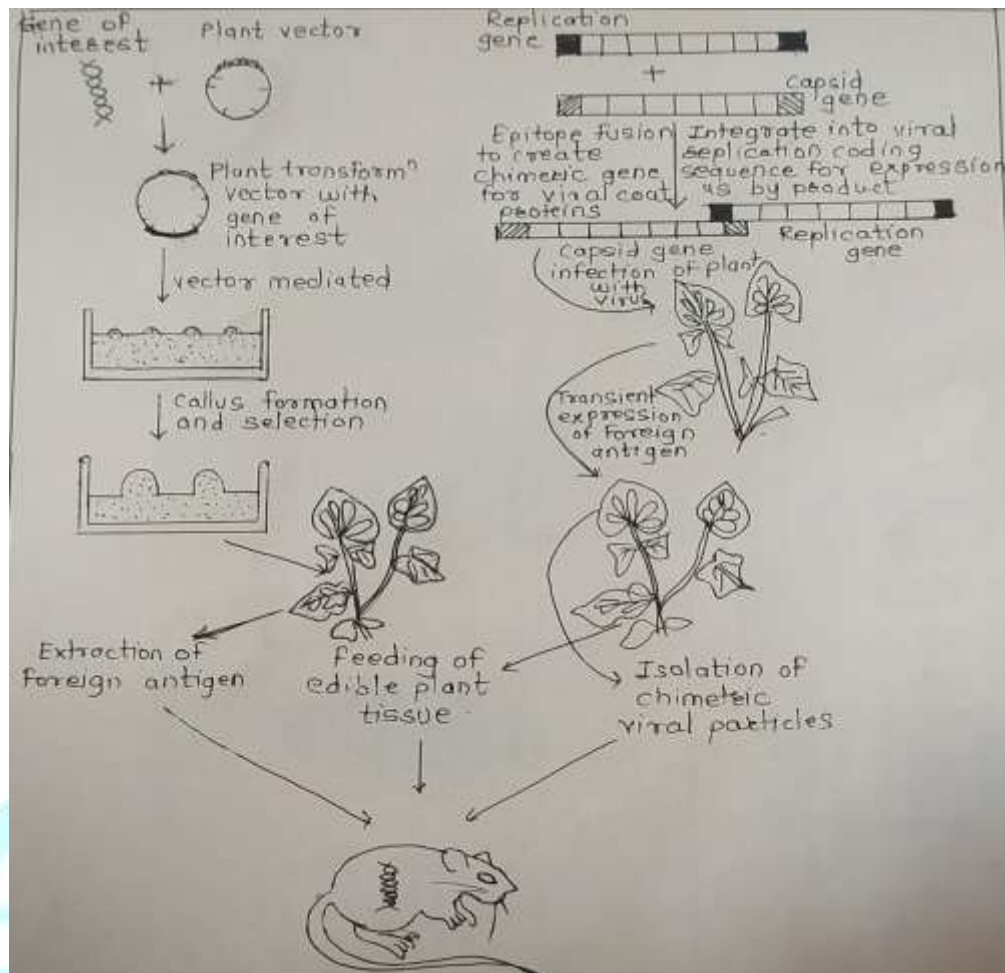 Gene of
interest
Plant vector
+
Plant transformⁿ
vector with
gene of
interest
vector mediated
Callus formation
and selection
Extraction of
foreign antigen
Replication
gene
+
Capsid
gene
Epitope fusion
to create
chimeric gene
for viral coat
proteins
Integrate into viral
replication coding
sequence for expression
as by product
Capsid gene
Replication
gene
infection of plant
with
virus
Transient
expression
of foreign
antigen
feeding of
edible plant
tissue
Isolation of
chimeric
viral particles